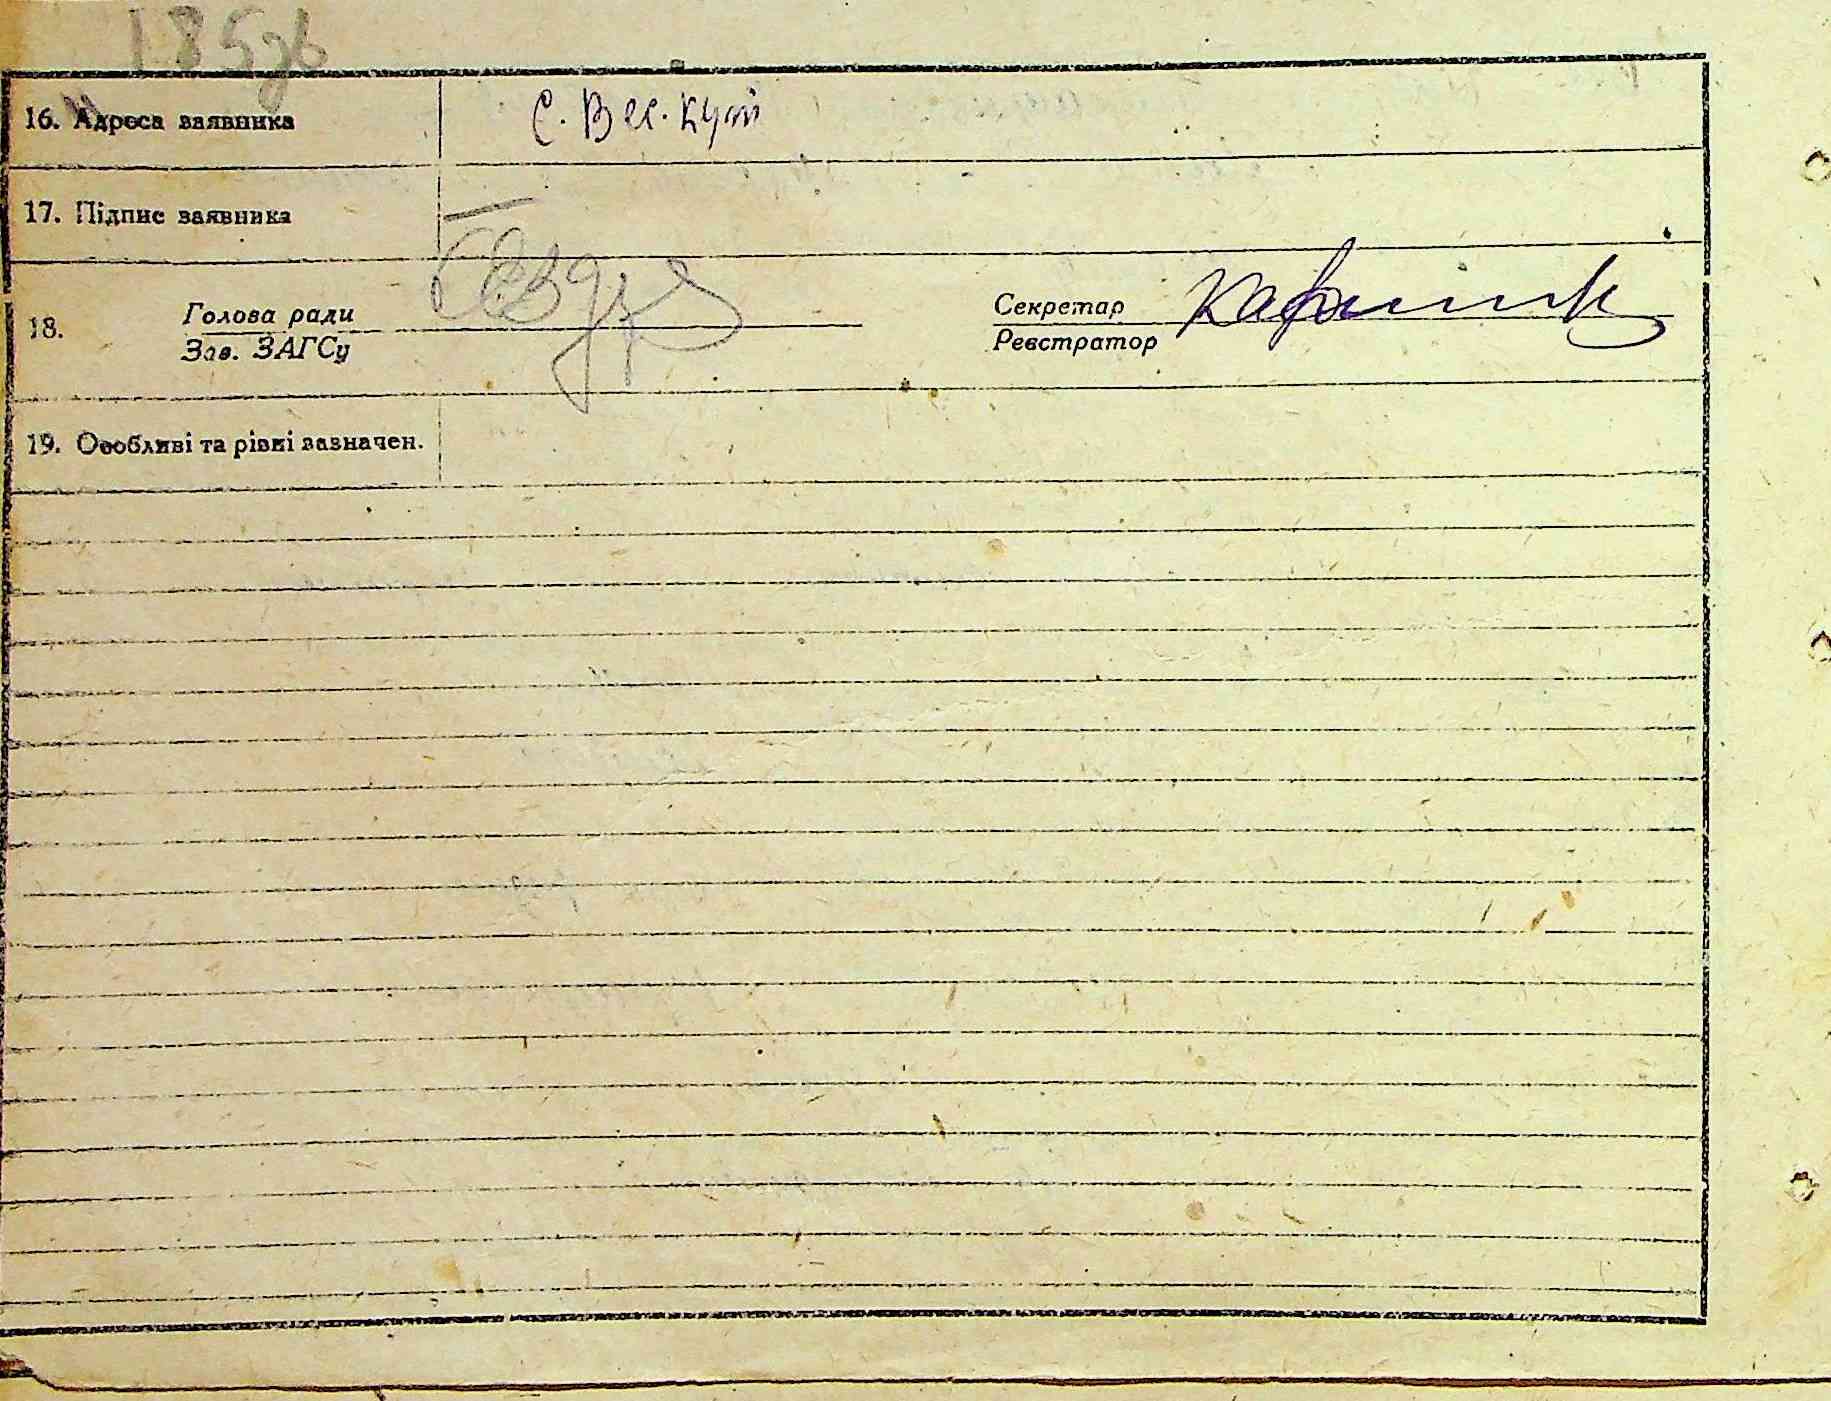 185зв
16. Адреса заявника С. Вел. Кути
17. Підпис заявника
18. Голова ради Секретар
Зав. ЗАГСу Реєстратор
19. Особливі та різні зазначен.